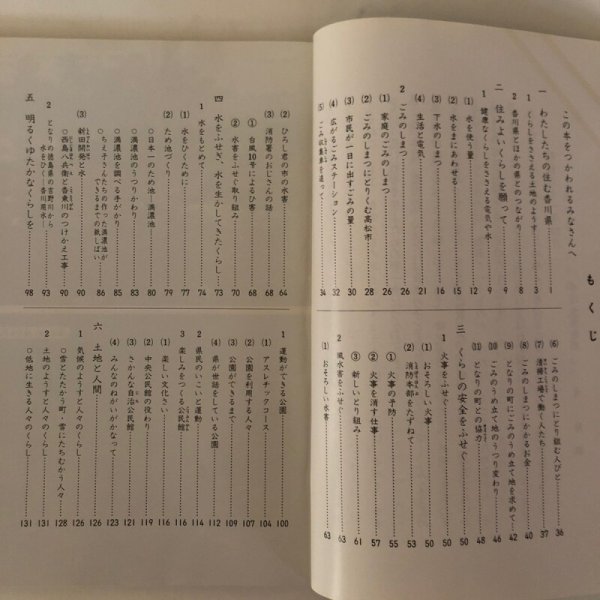 もくじ
この本をつかわれるみなさんへ
一 わたしたちの住む香川県 1
1 くらしをささえる土地のようす 3
2 香川県とほかの県とのつながり 8
二 住みよいくらしを願って 9
1 健康なくらしをささえる電気や水 9
(1) 水を使う量 12
(2) 水をまにあわせる 15
(3) 下水のしまつ 16
(4) 生活と電気 21
2 ごみのしまつ 26
(1) 家庭のごみのしまつ 26
(2) ごみのしまつにとりくむ高松市 28
(3) 市民が一日に出すごみの量 30
(4) 広がるごみステーション 32
(5) ごみ収集車を追って 34
(6) ごみのしまつにとり組む人びと 36
(7) 清掃工場で働く人たち 37
(8) ごみのしまつにかかるお金 40
(9) となりの町にごみのうめ立て地を求めて 42
(10) ごみのうめ立て地のうつり変わり 46
(11) となりの町との協力 48
三 くらしの安全をふせぐ 50
1 火事をふせぐ 50
(1) おそろしい火事 50
(2) 消防本部をたずねて 53
① 火事の予防 55
② 火事を消す仕事 57
③ 新しいとり組み 61
2 風水害をふせぐ 63
(1) おそろしい水害 63
(2) ひろし君の市の水害 64
(3) 消防署のおじさんの話 68
① 台風10号によるひ害 68
② 水害をふせぐ取り組み 70
四 水をふせぎ、水を生かしてきたくらし 73
1 水をもとめて 74
(1) 水をひくために 77
(2) ため池づくり 79
○日本一のため池―満濃池 79
○満濃池のうつりかわり 83
○満濃池を調べる手がかり 85
○ちえ子さんたちの作った満濃池ができるまでの紙しばい 86
(3) 新田開発と水 90
○西島八兵衛と香東川のつけかえ工事 90
2 となりの徳島県の吉野川から水をひく―香川用水― 93
五 明るくゆたかなくらしを 98
1 運動ができる公園 100
(1) アスレチックコース 104
(2) 公園を利用する人々 107
(3) 公園ができるまで 109
(4) 県が世話をしている公園 112
2 県民のいこいと運動 114
3 楽しみをつくる公民館 116
(1) 楽しい文化さい 116
(2) 中央公民館の役わり 119
(3) さかんな自治公民館 121
(4) みんなのねがいがかなって 123
六 土地と人間 126
1 気候のようすと人々のくらし 126
○雪とたたかう町・雪にたちむかう人々 128
2 土地のようすと人々のくらし 131
○低い地に生きる人々のくらし 131